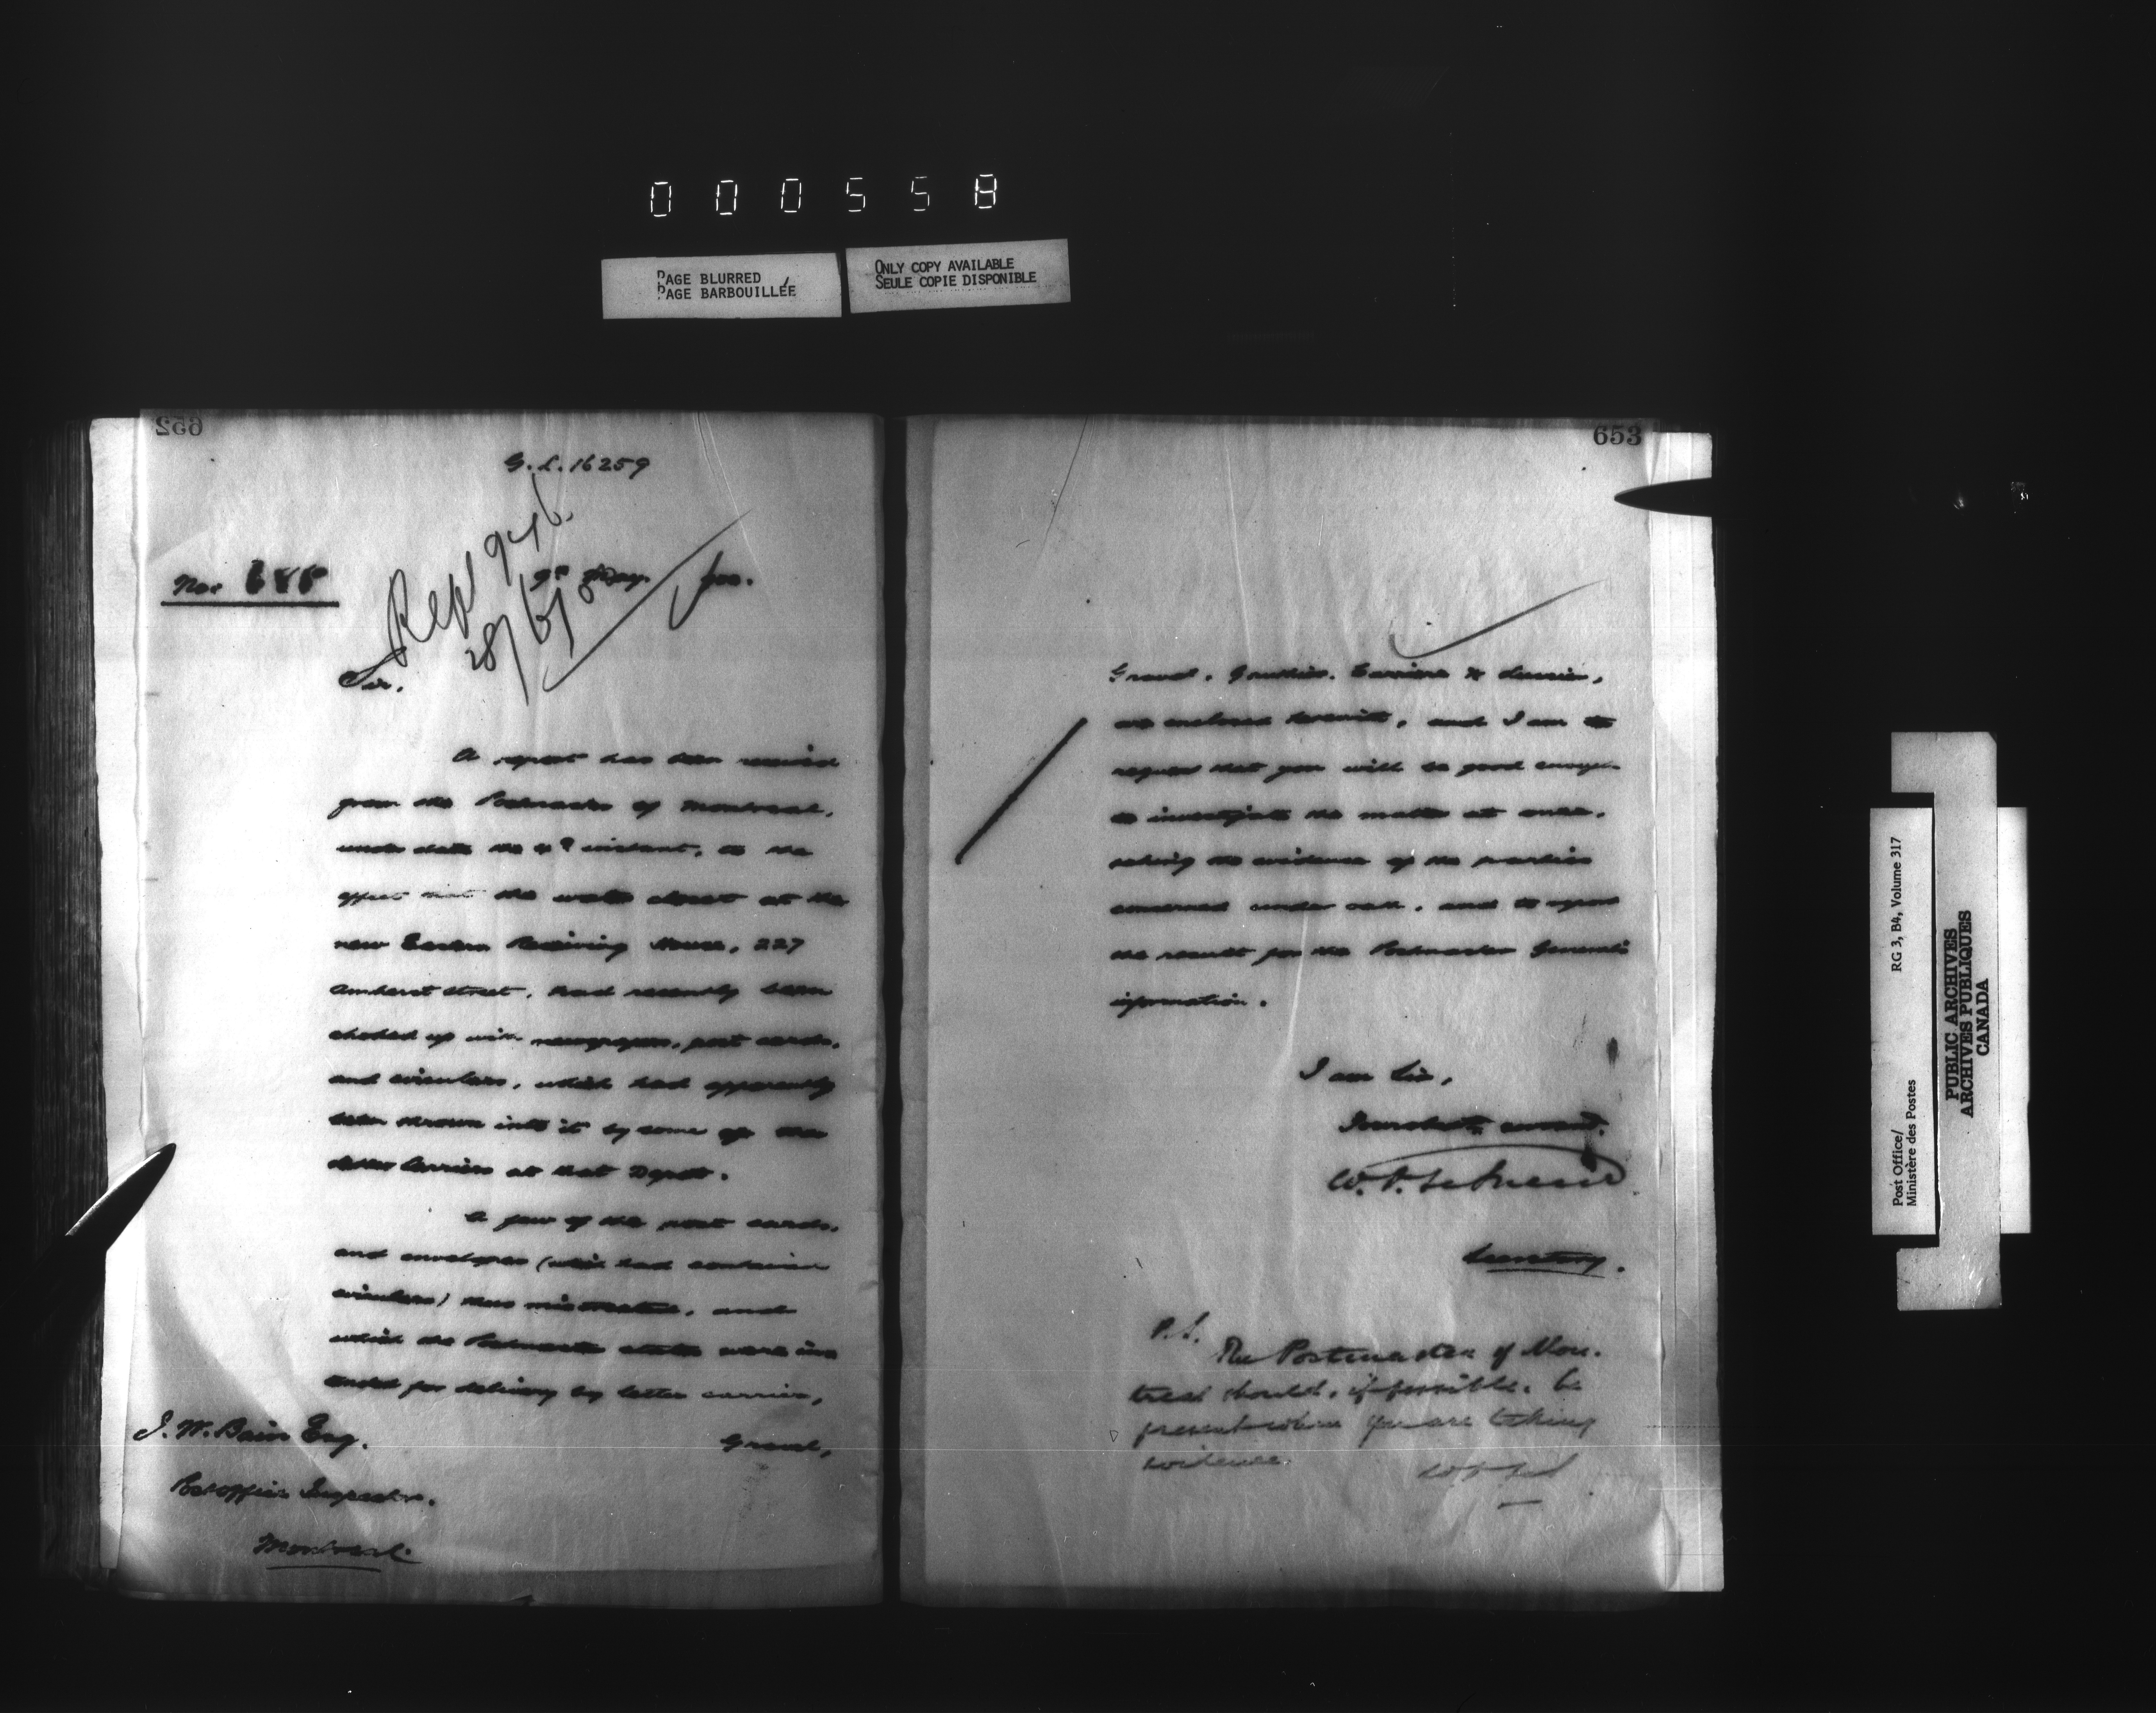 000558
PAGE BLURRED
PAGE BARBOUILLÉE
ONLY COPY AVAILABLE
SEULE COPIE DISPONIBLE
652
G. L. 16259
No.
Repl
28/5/0
9th May.
Sir.
A report has been received
from the Postmaster of Montreal,
under date the instant, to the
effect that the water closet at the
new Eastern Receiving House, 227
Amherst street, had recently been
choked up with newspapers, post cards,
and circulars, which had apparently
been thrown into it by some of the
letter Carriers at that Depot.
A few of the post cards,
and envelopes (which had contained
circulars) thus mistreated, and
which the Postmaster states were in-
tended for delivery by letter carriers,
Gravel,
J. W. Bain Esq.
Post office Inspector.
Montreal
653
Gravel, Gauthier, Carrière & Lussier,
are enclosed herewith, and I am to
request that you will be good enough
to investigate the matter at once,
taking the evidence of the parties
concerned under oath, and to report
the result for the Postmaster General's
information.
I am Sir,
Your obedt. servant.
W. D. LeSueur
Secretary.
P.S.
The Postmaster of Mon-
treal should, if possible, be
present when you are taking
evidence.
Post Office/
Ministère des Postes
RG 3, B4, Volume 317
PUBLIC ARCHIVES
ARCHIVES PUBLIQUES
CANADA